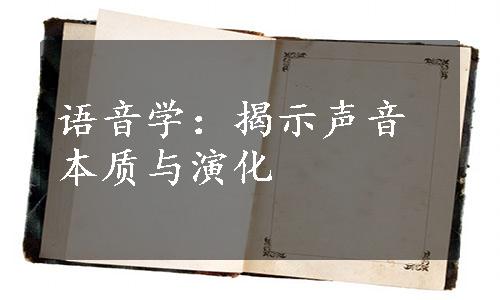 语音学：揭示声音
本质与演化